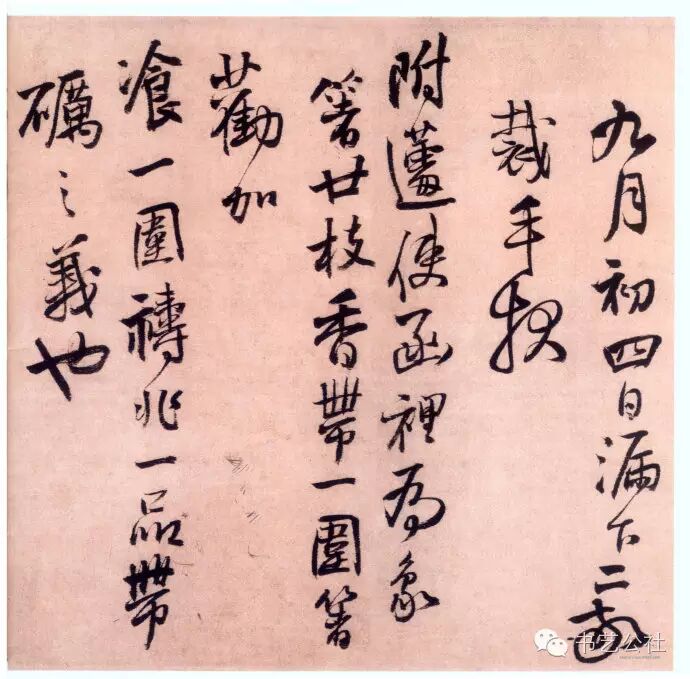 九月初四日漏下二
裁手
附蘧使函裡為象
箸廿枝香帶一圍箸
廿勸加
湌一圍禱兆一品帶
礪之義也
书艺公社